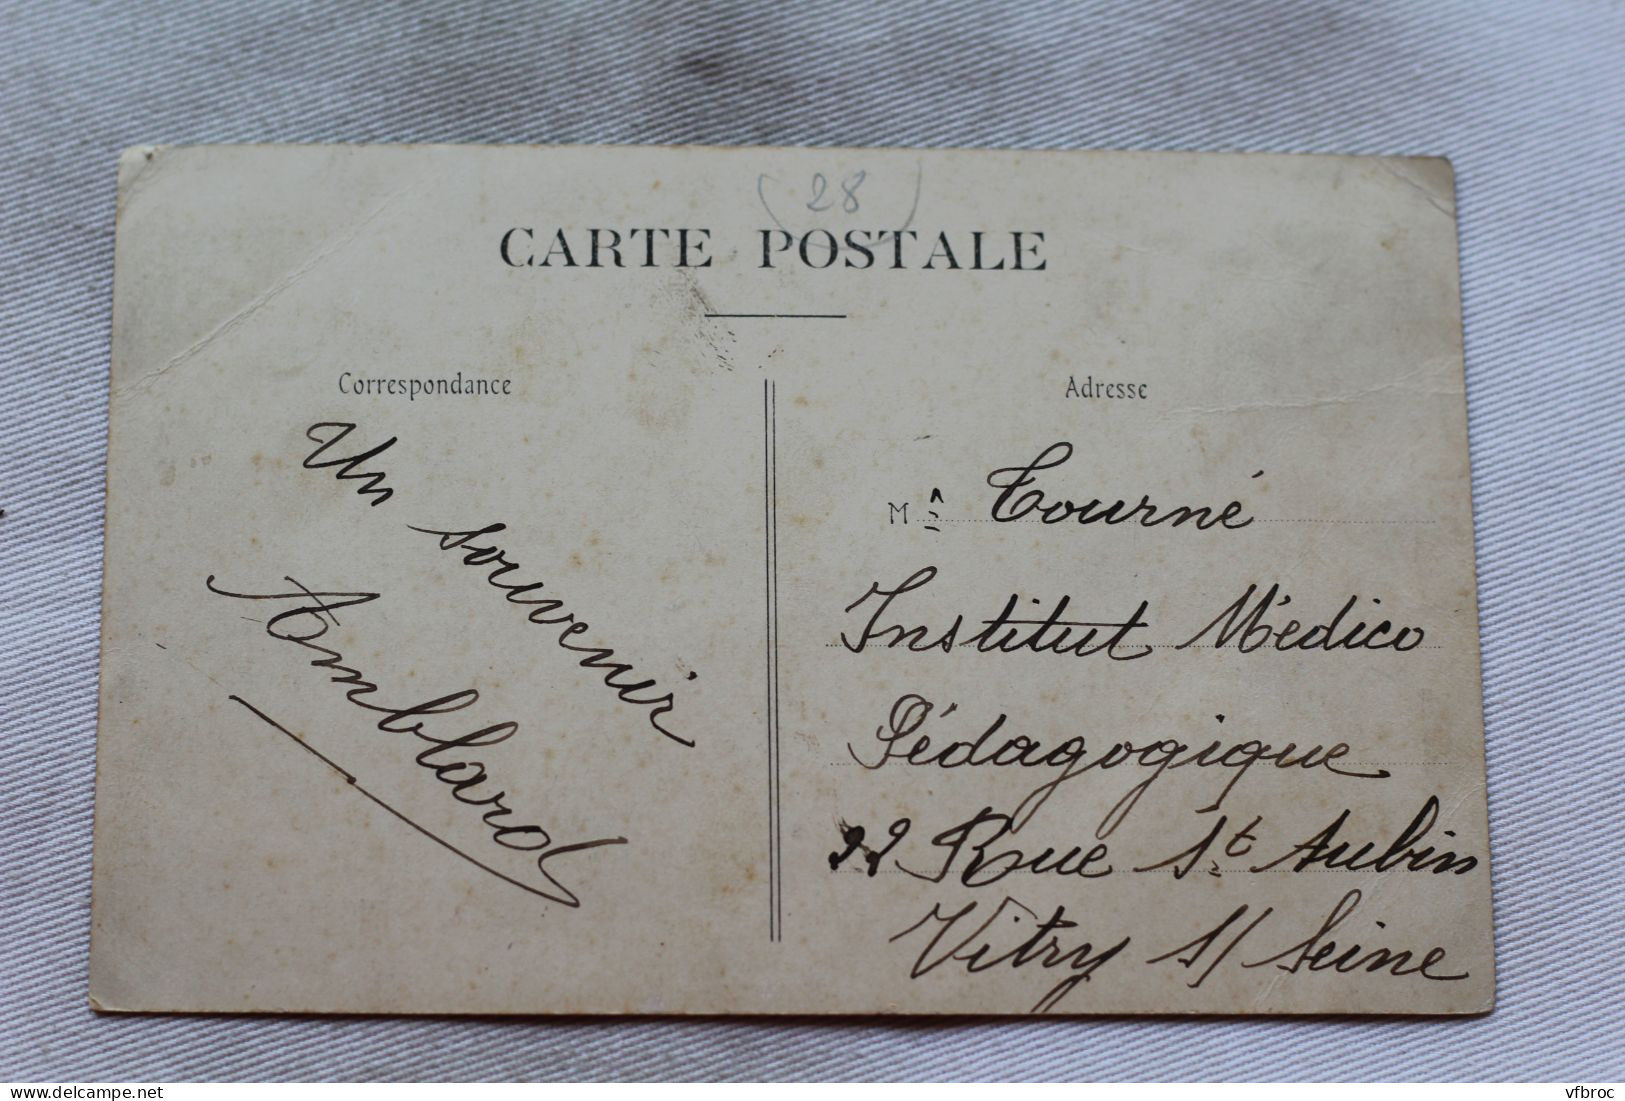 (28)
CARTE POSTALE
Correspondance
Un souvenir
Amblard
Adresse
Mr Tourné
Institut Médico
Pédagogique
22 Rue St Aubin
Vitry s/ Seine
delcampe.net
vfbroc